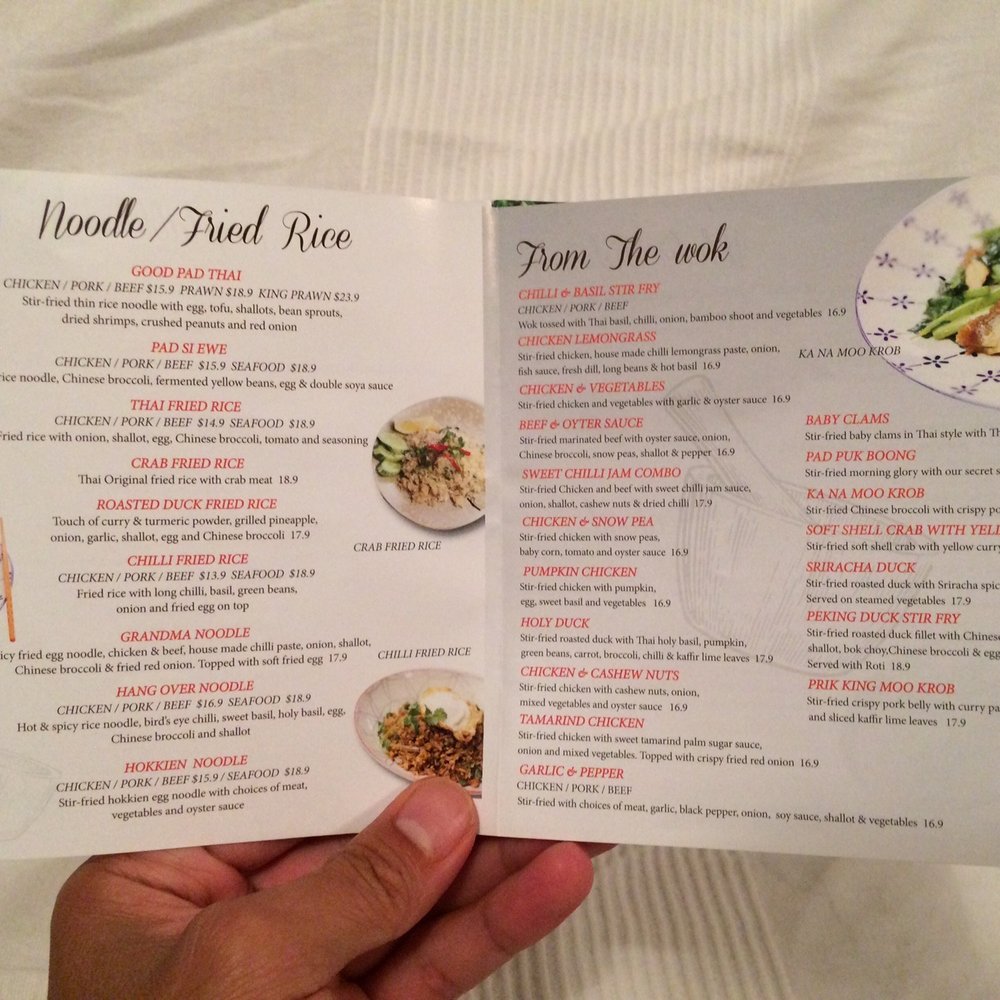 Noodle/Fried Rice
GOOD PAD THAI
CHICKEN / PORK / BEEF $15.9 PRAWN $18.9 KING PRAWN $23.9
Stir-fried thin rice noodle with egg, tofu, shallots, bean sprouts,
dried shrimps, crushed peanuts and red onion
PAD SI EWE
CHICKEN / PORK / BEEF $15.9 SEAFOOD $18.9
noodle, Chinese broccoli, fermented yellow beans, egg & double soya sauce
THAI FRIED RICE
CHICKEN / PORK / BEEF $14.9 SEAFOOD $18.9
Fried rice with onion, shallot, egg, Chinese broccoli, tomato and seasoning
CRAB FRIED RICE
Thai Original fried rice with crab meat 18.9
ROASTED DUCK FRIED RICE
Touch of curry & turmeric powder, grilled pineapple,
onion, garlic, shallot, egg and Chinese broccoli 17.9
CRAB FRIED RICE
CHILLI FRIED RICE
CHICKEN / PORK / BEEF $13.9 SEAFOOD $18.9
Fried rice with long chilli, basil, green beans,
onion and fried egg on top
GRANDMA NOODLE
fried egg noodle, chicken & beef, house made chilli paste, onion, shallot,
Chinese broccoli & fried red onion. Topped with soft fried egg 17.9
CHILLI FRIED RICE
HANG OVER NOODLE
CHICKEN / PORK / BEEF $16.9 SEAFOOD $18.9
Hot & spicy rice noodle, bird's eye chilli, sweet basil, holy basil, egg,
Chinese broccoli and shallot
HOKKIEN NOODLE
CHICKEN / PORK / BEEF $15.9 / SEAFOOD $18.9
Stir-fried hokkien egg noodle with choices of meat,
vegetables and oyster sauce
From The wok
CHILLI & BASIL STIR FRY
CHICKEN / PORK / BEEF
Wok tossed with Thai basil, chilli, onion, bamboo shoot and vegetables 16.9
CHICKEN LEMONGRASS
Stir-fried chicken, house made chilli lemongrass paste, onion,
fish sauce, fresh dill, long beans & hot basil 16.9
CHICKEN & VEGETABLES
Stir-fried chicken and vegetables with garlic & oyster sauce 16.9
BEEF & OYTER SAUCE
Stir-fried marinated beef with oyster sauce, onion,
Chinese broccoli, snow peas, shallot & pepper 16.9
SWEET CHILLI JAM COMBO
Stir-fried Chicken and beef with sweet chilli jam sauce,
onion, shallot, cashew nuts & dried chilli 17.9
CHICKEN & SNOW PEA
Stir-fried chicken with snow peas,
baby corn, tomato and oyster sauce 16.9
PUMPKIN CHICKEN
Stir-fried chicken with pumpkin,
egg, sweet basil and vegetables 16.9
HOLY DUCK
Stir-fried roasted duck with Thai holy basil, pumpkin,
green beans, carrot, broccoli, chilli & kaffir lime leaves 17.9
CHICKEN & CASHEW NUTS
Stir-fried chicken with cashew nuts, onion,
mixed vegetables and oyster sauce 16.9
TAMARIND CHICKEN
Stir-fried chicken with sweet tamarind palm sugar sauce,
onion and mixed vegetables. Topped with crispy fried red onion 16.9
GARLIC & PEPPER
CHICKEN / PORK / BEEF
Stir-fried with choices of meat, garlic, black pepper, onion, soy sauce, shallot & vegetables 16.9
KA NA MOO KROB
BABY CLAMS
Stir-fried baby clams in Thai style with
PAD PUK BOONG
Stir-fried morning glory with our secret
KA NA MOO KROB
Stir-fried Chinese broccoli with crispy
SOFT SHELL CRAB WITH
Stir-fried soft shell crab with yellow curry
SRIRACHA DUCK
Stir-fried roasted duck with Sriracha
Served on steamed vegetables 17.9
PEKING DUCK STIR FRY
Stir-fried roasted duck fillet with Chinese
shallot, bok choy,Chinese broccoli & egg
Served with Roti 18.9
PRIK KING MOO KROB
Stir-fried crispy pork belly with curry
and sliced kaffir lime leaves 17.9